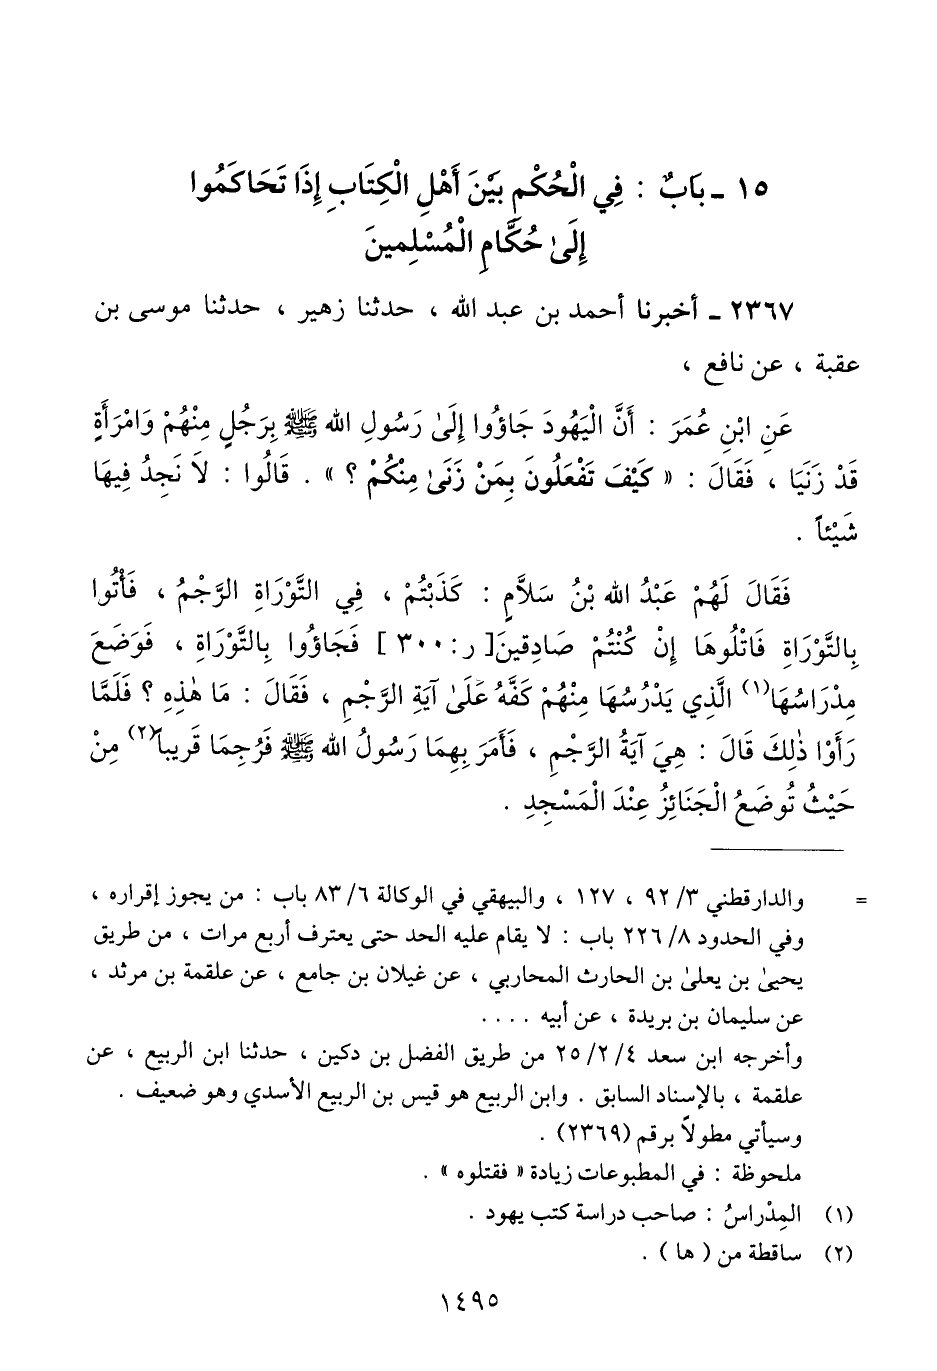 ١٥ ـ بَابٌ : فِي الْحُكْمِ بَيْنَ أَهْلِ الْكِتَابِ إِذَا تَحَاكَمُوا
إِلَىٰ حُكَّامِ الْمُسْلِمِينَ
٢٣٦٧ ـ أخبرنا أحمد بن عبد الله ، حدثنا زهير ، حدثنا موسى بن
عقبة ، عن نافع ،
عَنِ ابْنِ عُمَرَ : أَنَّ الْيَهُودَ جَاؤُوا إِلَىٰ رَسُولِ الله ﷺ بِرَجُلٍ مِنْهُمْ وَامْرَأَةٍ
قَدْ زَنَيَا ، فَقَالَ : « كَيْفَ تَفْعَلُونَ بِمَنْ زَنَىٰ مِنْكُمْ ؟ » . قَالُوا : لاَ نَجِدُ فِيهَا
شَيْئاً .
فَقَالَ لَهُمْ عَبْدُ الله بْنُ سَلاَّمٍ : كَذَبْتُمْ ، فِي التَّوْرَاةِ الرَّجْمُ ، فَأْتُوا
بِالتَّوْرَاةِ فَاتْلُوهَا إِنْ كُنْتُمْ صَادِقِينَ[ ر : ٣٠٠ ] فَجَاؤُوا بِالتَّوْرَاةِ ، فَوَضَعَ
مِدْرَاسُهَا(١) الَّذِي يَدْرُسُهَا مِنْهُمْ كَفَّهُ عَلَىٰ آيَةِ الرَّجْمِ ، فَقَالَ : مَا هٰذِهِ ؟ فَلَمَّا
رَأَوْا ذٰلِكَ قَالَ : هِيَ آيَةُ الرَّجْمِ ، فَأَمَرَ بِهِمَا رَسُولُ الله ﷺ فَرُجِمَا قَرِيباً(٢) مِنْ
حَيْثُ تُوضَعُ الْجَنَائِزُ عِنْدَ الْمَسْجِدِ .
= والدارقطني ٣/ ٩٢ ، ١٢٧ ، والبيهقي في الوكالة ٦/ ٨٣ باب : من يجوز إقراره ،
وفي الحدود ٨/ ٢٢٦ باب : لا يقام عليه الحد حتى يعترف أربع مرات ، من طريق
يحيىٰ بن يعلىٰ بن الحارث المحاربي ، عن غيلان بن جامع ، عن علقمة بن مرثد ،
عن سليمان بن بريدة ، عن أبيه . . . .
وأخرجه ابن سعد ٤/ ٢/ ٢٥ من طريق الفضل بن دكين ، حدثنا ابن الربيع ، عن
علقمة ، بالإسناد السابق . وابن الربيع هو قيس بن الربيع الأسدي وهو ضعيف .
وسيأتي مطولاً برقم (٢٣٦٩) .
ملحوظة : في المطبوعات زيادة « فقتلوه » .
(١) المِدْراسُ : صاحب دراسة كتب يهود .
(٢) ساقطة من ( ها ) .
١٤٩٥